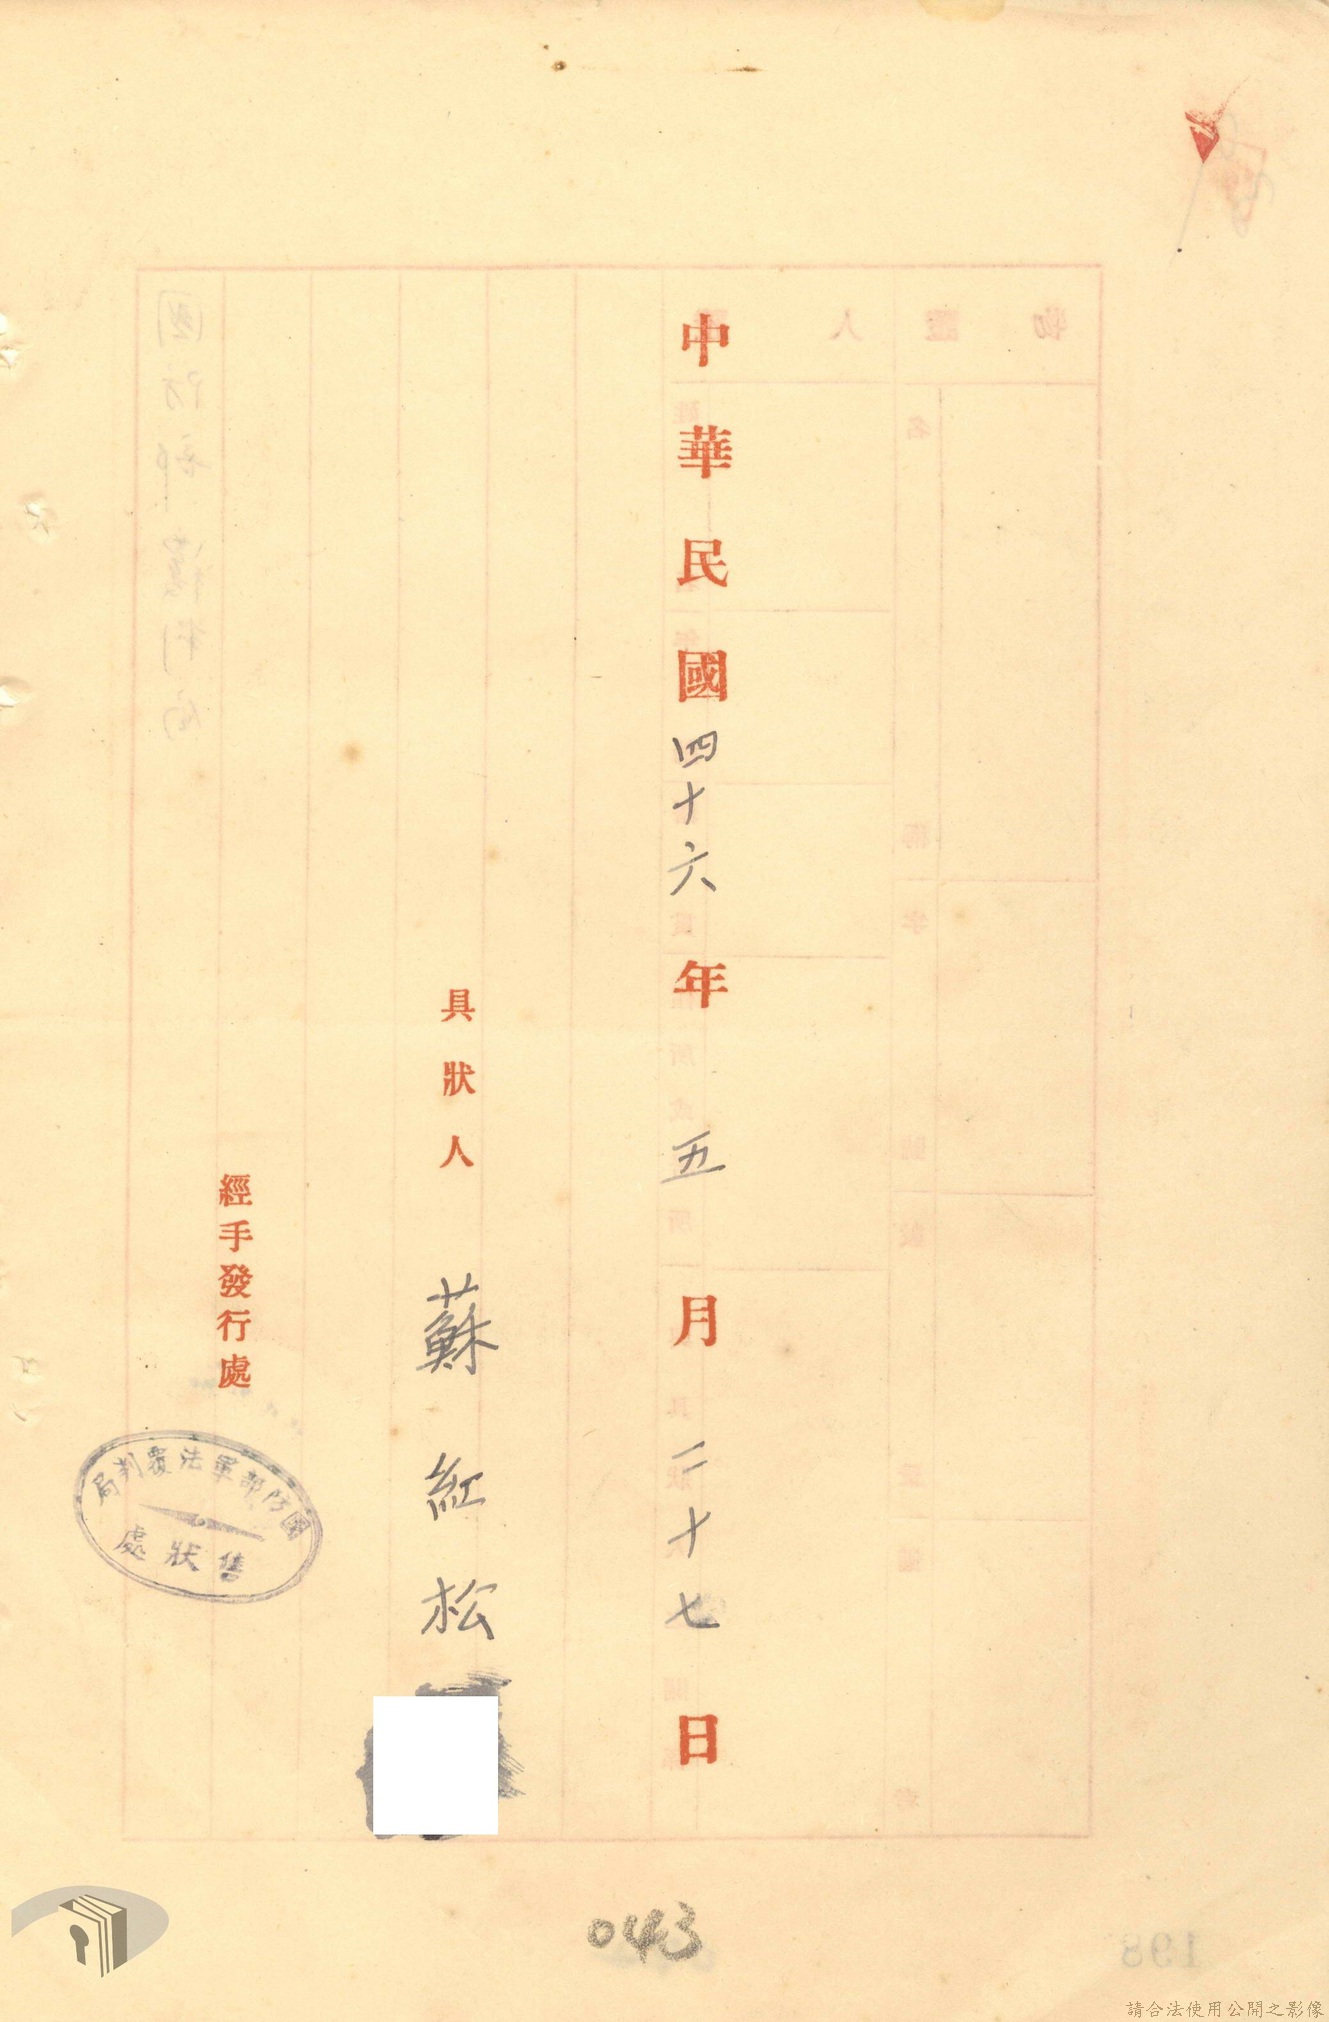 中華民國四十六年五月二十七日
具狀人 蘇紅松
經手發行處
國防部軍法覆判局
售狀處
043
198
請合法使用公開之影像